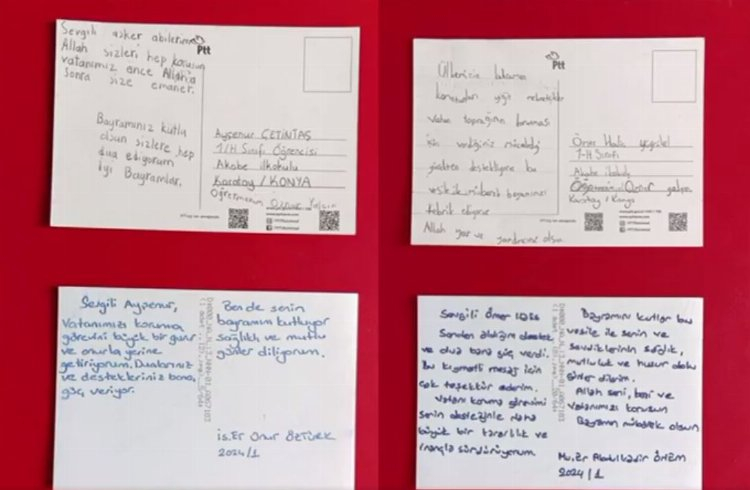 Sevgili asker abilerime
Allah sizleri hep korusun
vatanımız önce Allah'a
sonra size emanet.
Bayramınız kutlu
olsun sizlere hep
dua ediyorum
iyi Bayramlar.
Ptt
Ayşenur ÇETİNTAŞ
1/H Sınıfı Öğrencisi
Akabe ilkokulu
Karatay / KONYA
Öğretmenim Öznur
Ptt
Ülkemizin
yiğit mehmetçikler
vatan toprağını koruması
için verdiğiniz mücadeleyi
destekliyor bu
vesileile mübarek bayramınızı
tebrik ediyorum
Allah yar ve yardımcınız olsun
Ömer Halis
1-H Sınıfı
Akabe ilkokulu
Öğretmenim Öznur
Karatay / Konya
Sevgili Ayşenur,
Vatanımızı koruma
görevini büyük bir gurur
ve onurla yerine
getiriyorum. Dualarınız
ve destekleriniz bana
güç veriyor.
Bende senin
bayramını kutluyor
sağlıklı ve mutlu
günler diliyorum.
is.Er Onur ÖZTÜRK
2024/1
Sevgili Ömer
Senden aldığım destek
ve dua bana güç verdi.
Bu kıymetli mesaj için
çok teşekkür ederim.
Vatanı koruma görevimi
senin desteğinle daha
büyük bir kararlılık ve
inançla sürdürüyorum.
Bayramını kutlar bu
vesile ile senin ve
sevdiklerinin sağlık,
mutluluk ve huzur dolu
günler dilerim.
Allah seni, beni ve
vatanımızı korusun
Bayramın mübarek olsun
Mu.Er Abdulkadir
2024/1